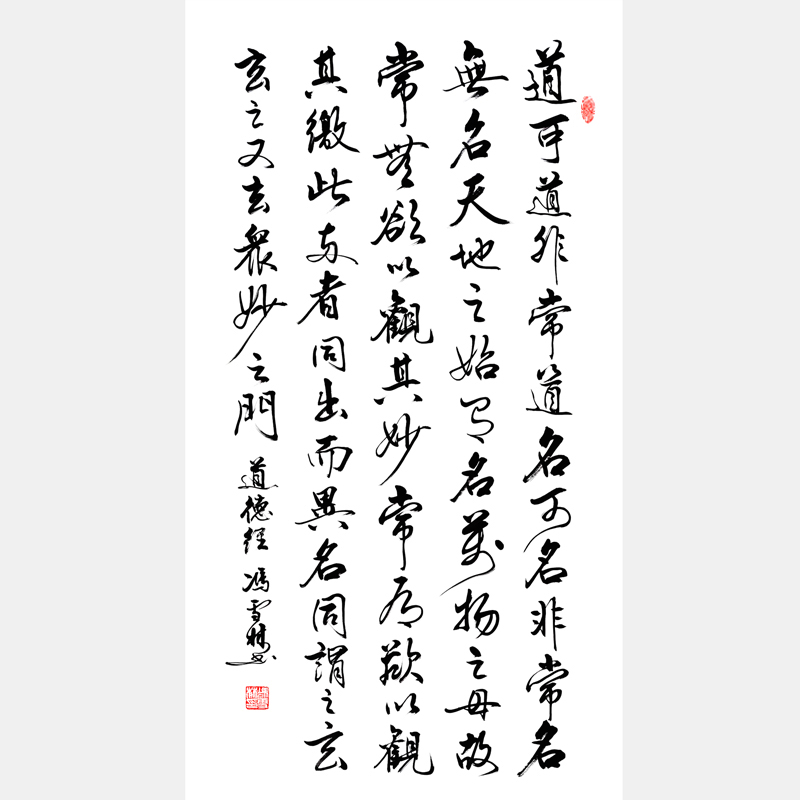 道可道非常道名可名非常名
無名天地之始有名萬物之母故
常無欲以觀其妙常有欲以觀
其徼此兩者同出而異名同謂之玄
玄之又玄眾妙之門
道德經 馮雪林書